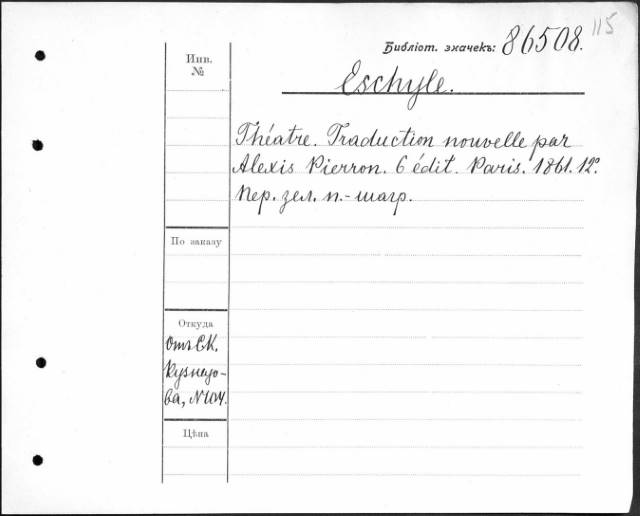 115
Библіот. значекъ: 86508.
Инв.
№
Eschyle.
Théatre. Traduction nouvelle par
Alexis Pierron. 6 édit. Paris. 1861. 12º.
Пер. зел. п.-шагр.
По заказу
Откуда
Отъ СК.
Кузнецо-
ва, №104.
Цѣна